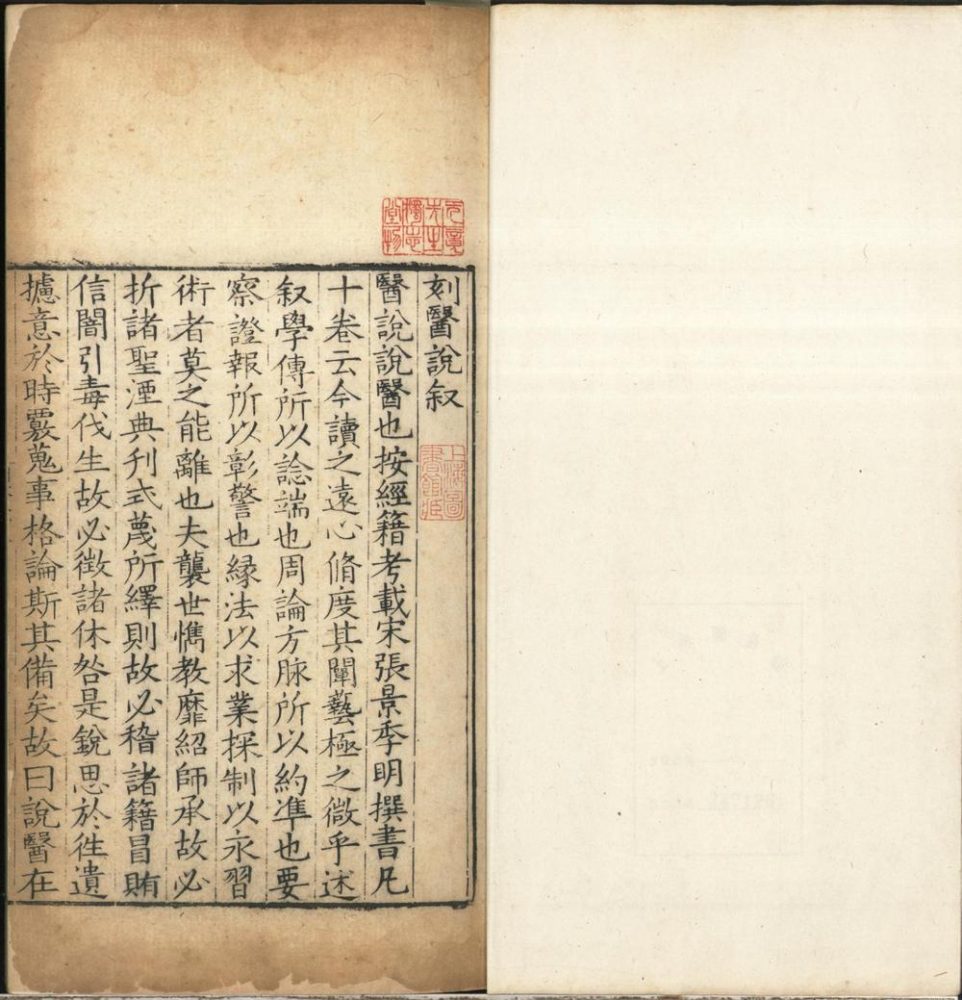 刻醫說叙
醫說說醫也按經籍考載宋張景季明撰書凡
十卷云今讀之遠心脩度其闡藝極之微乎述
叙學傳所以諗端也周論方脉所以約準也要
察證報所以彰警也緣法以求業探制以永習
術者莫之能離也夫襲世儁教靡紹師承故必
折諸聖湮典刋式蔑所繹則故必稽諸籍冒賄
信闇引毒伐生故必徵諸休咎是銳思於徃遺
攄意於時覈蒐事格論斯其備矣故曰說醫在
上海圖書館藏